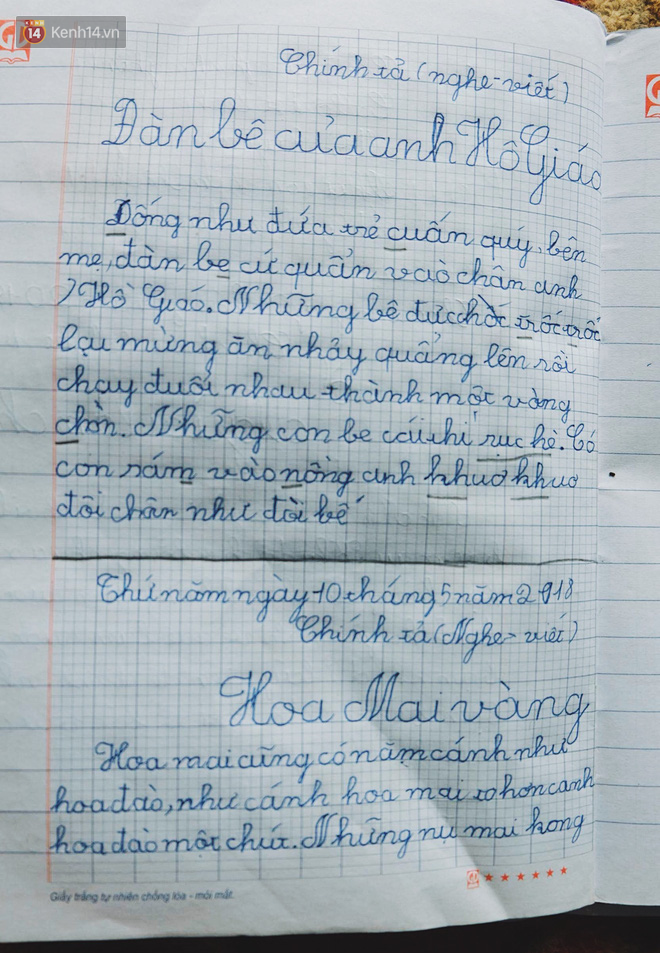 Kenh14.vn
Chính tả (nghe-viết)
Đàn bê của anh Hồ Giáo
Dống như đứa trẻ cuấn quý bên
mẹ, đàn be cứ quẩn vào chân anh
Hồ Gáo. Những bê đực chốc trốc trốc
lại mừng ăn nhảy quẩng lên rồi
chạy đuổi nhau thành một vàng
chòn. Những con be cái thì rục hè. Có
con rám vào nòng anh khuơ khuơ
đôi chân như đòi bế
Thứ năm ngày 10 tháng 5 năm 2018
Chính tả (Nghe-viết)
Hoa Mai vàng
Hoa mai cũng có năm cánh như
hoa đào, như cánh hoa mai to hơn canh
hoa đào một chút. Những nụ mai kong
Giấy trắng tự nhiên chống lóa - mỏi mắt.